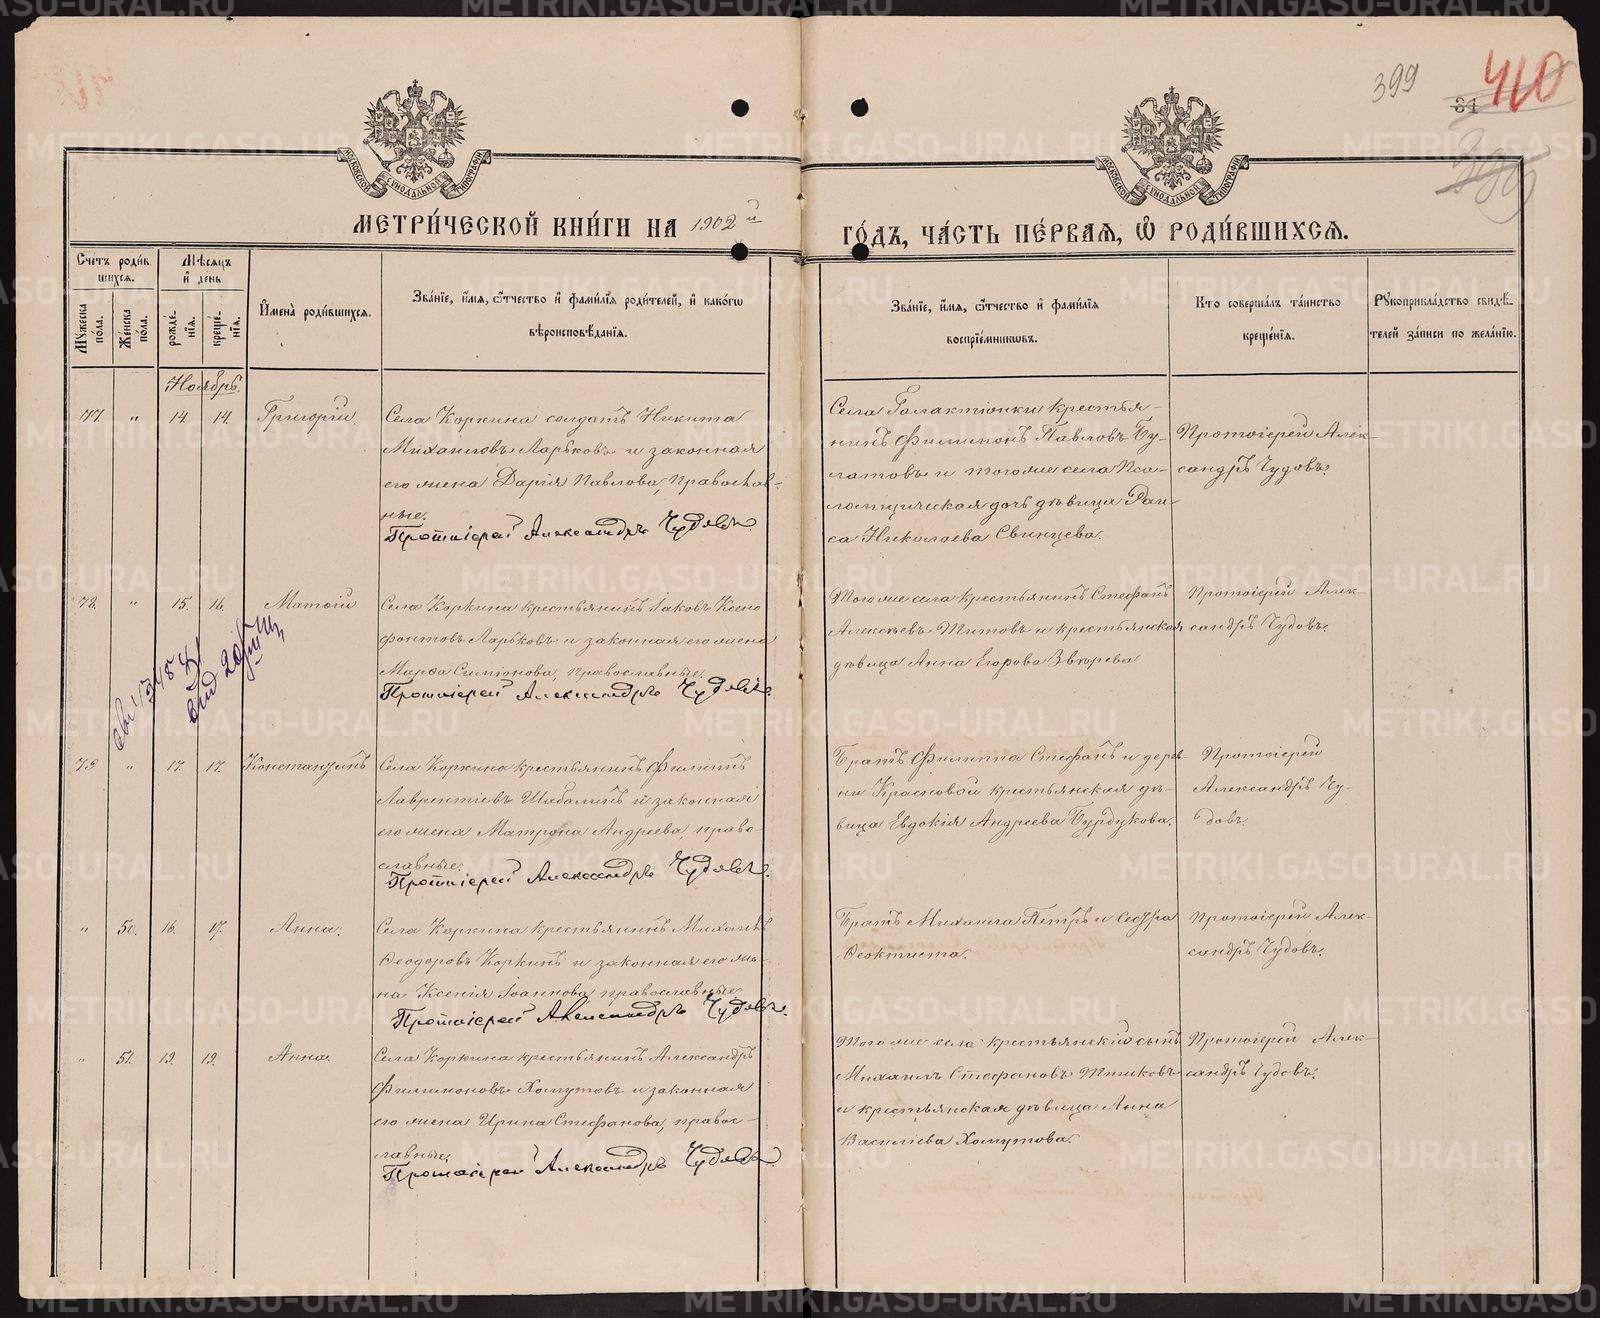 399
34
410
МОСКОВСКОЙ СѴНОДАЛЬНОЙ ТИПОГРАФІИ
МОСКОВСКОЙ СѴНОДАЛЬНОЙ ТИПОГРАФІИ
МЕТРИ́ЧЕСКОЙ КНИ́ГИ НА 1902 й
ГО́ДЪ, ЧА́СТЬ ПЕ́РВАЯ, Ѽ РОДИ́ВШИХСЯ.
Сче́тъ роди́в-
шихся.
Му́жеска по́ла.
Же́нска по́ла.
Мѣ́сяцъ
и҆ де́нь
рожде́-
нїя.
креще́-
нїя.
И҆мена̀ роди́вшихся.
Зва́нїе, и҆́мя, ѻ҆́тчество и҆ фами́лїя роди́телей, и҆ како́гѡ
вѣроисповѣ́данїя.
Зва́нїе, и҆́мя, ѻ҆́тчество и҆ фами́лїя
воспрїе́мникѡвъ.
Кто̀ соверша́лъ та́инство
креще́нїя.
Рꙋкоприкла́дство свидѣ́-
телей за́писи по жела́нїю.
Ноябрь.
77. " 14. 14. Григорій.
Села Коркина солдатъ Никита
Михаиловъ Ларьковъ и законная
его жена Дарія Павлова, Православ-
ные.
Протоіерей Александръ Чудовъ
Села Галактіонки крестья-
нинъ Филимонъ Павловъ Бу-
латовъ и тогоже села Пса-
ломщическая дочь дѣвица Раи-
са Николаева Свинцева.
Протоіерей Алек-
сандръ Чудовъ.
78. " 15. 16. Матѳій
Села Коркина крестьянинъ Іаковъ Ксено
фонтовъ Ларьковъ и законная его жена
Марѳа Симіонова, православные.
Протоіерей Александръ Чудовъ.
Того же села крестьянинъ Стефанъ
Алексѣевъ Титовъ и крестьянская
дѣвица Анна Егорова Звѣрева
Протоіерей Алек-
сандръ Чудовъ.
79 " 17. 17. Константинъ
Села Коркина крестьянинъ Филиппъ
Лаврентіевъ Шабалинъ и законная
его жена Матрона Андреева, право-
славные.
Протоіерей Александръ Чудовъ.
Братъ Филиппа Стефанъ и дерев-
ни Красновой крестьянская дѣ-
вица Евдокія Андреева Бурдукова.
Протоіерей
Александръ Чу-
довъ.
" 50. 16. 17. Анна.
Села Коркина крестьянинъ Михаилъ
Ѳеодоровъ Коркинъ и законная его же-
на Ксенія Іоаннова, православные
Протоіерей Александръ Чудовъ.
Братъ Михаила Петръ и сестра
Ѳеоктиста.
Протоіерей Алек-
сандръ Чудовъ.
" 51. 19. 19. Анна.
Села Коркина крестьянинъ Александръ
Филимоновъ Хомутовъ и законная
его жена Ирина Стефанова, правос-
лавные.
Протоіерей Александръ Чудовъ
Того же села крестьянскій сынъ
Михаилъ Стефановъ Тишковъ
и крестьянская дѣвица Анна
Василіева Хомутова.
Протоіерей Алек-
сандръ Чудовъ.
METRIKI.GASO-URAL.RU